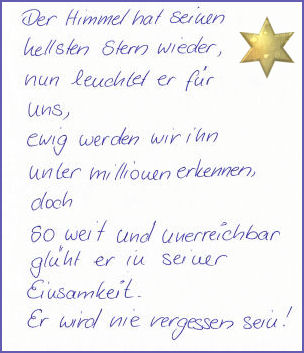 Der Himmel hat seinen
hellsten Stern wieder,
nun leuchtet er für
uns,
ewig werden wir ihn
unter millionen erkennen,
doch
so weit und unerreichbar
glüht er in seiner
Einsamkeit.
Er wird nie vergessen sein!